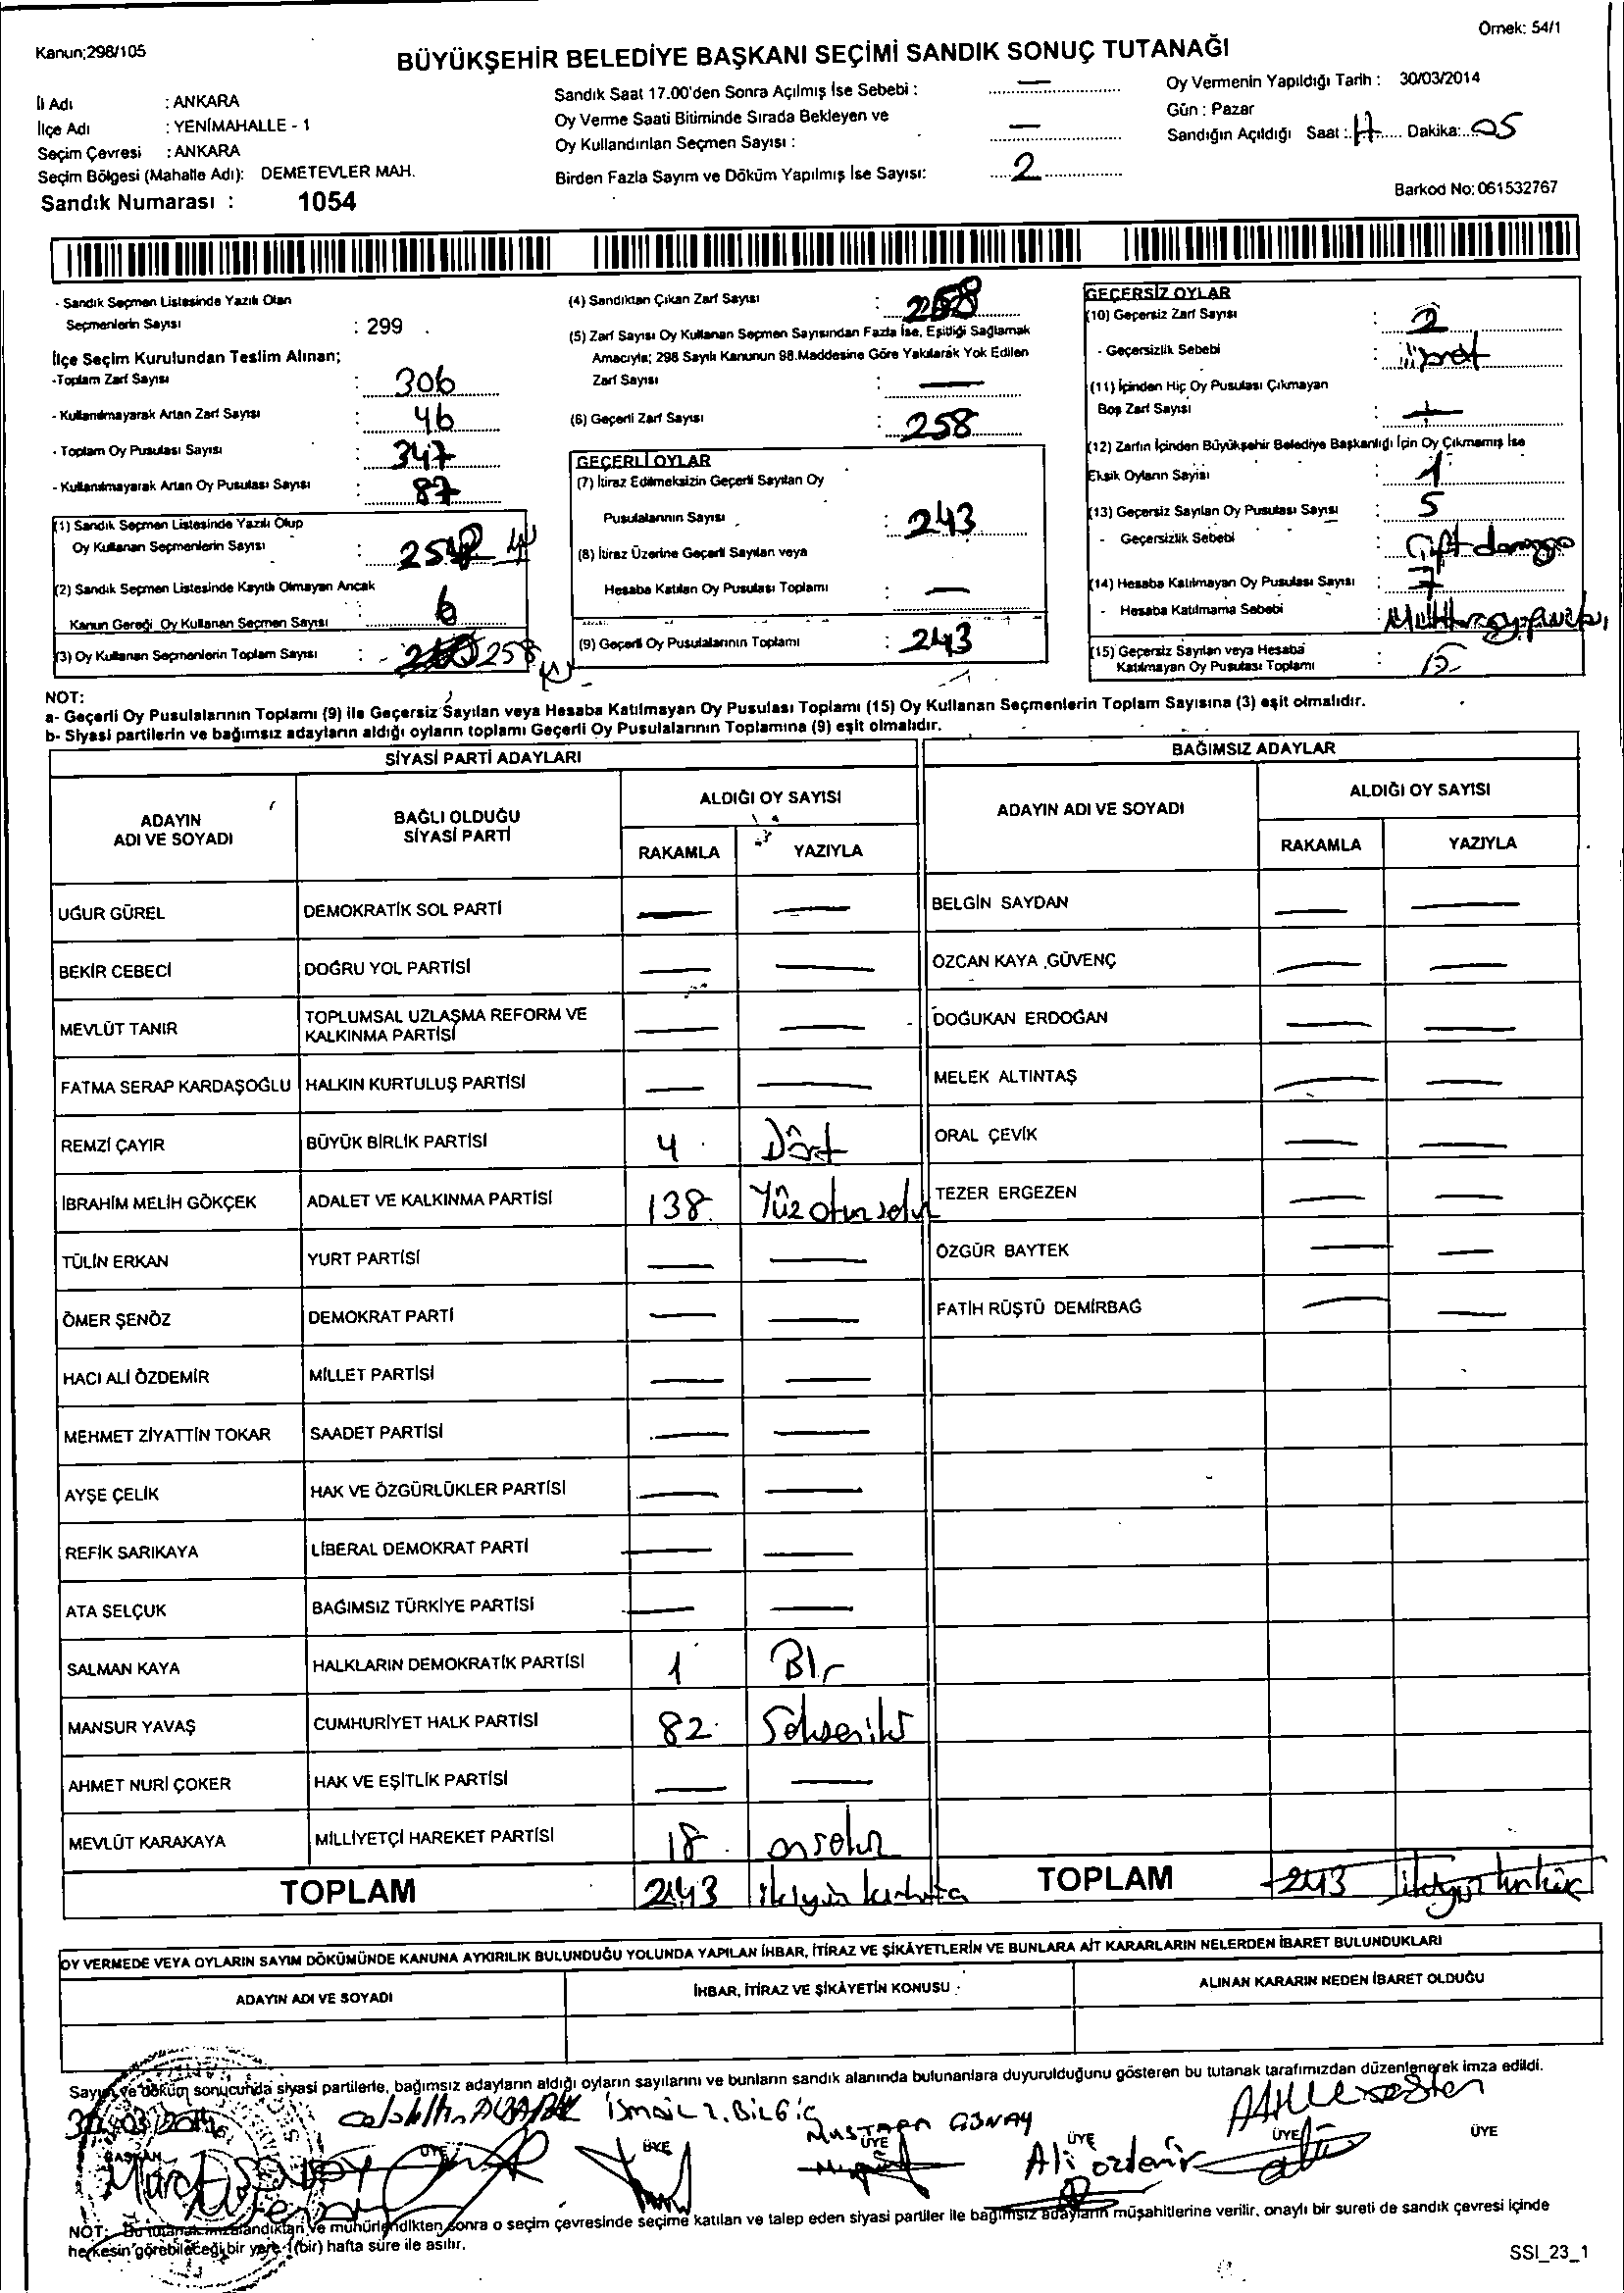 Kanun;298/105
Örnek: 54/1
BÜYÜKŞEHİR BELEDİYE BAŞKANI SEÇİMİ SANDIK SONUÇ TUTANAĞI
İl Adı : ANKARA
İlçe Adı : YENİMAHALLE - 1
Seçim Çevresi : ANKARA
Seçim Bölgesi (Mahalle Adı): DEMETEVLER MAH.
Sandık Numarası : 1054
Sandık Saat 17.00'den Sonra Açılmış İse Sebebi : —
Oy Verme Saati Bitiminde Sırada Bekleyen ve
Oy Kullandırılan Seçmen Sayısı : —
Birden Fazla Sayım ve Döküm Yapılmış İse Sayısı: 2
Oy Vermenin Yapıldığı Tarih : 30/03/2014
Gün : Pazar
Sandığın Açıldığı Saat : 17 Dakika: 05
Barkod No: 061532767
- Sandık Seçmen Listesinde Yazılı Olan
Seçmenlerin Sayısı : 299
İlçe Seçim Kurulundan Teslim Alınan;
-Toplam Zarf Sayısı : 306
- Kullanılmayarak Artan Zarf Sayısı : 46
- Toplam Oy Pusulası Sayısı : 347
- Kullanılmayarak Artan Oy Pusulası Sayısı : 87
(1) Sandık Seçmen Listesinde Yazılı Olup
Oy Kullanan Seçmenlerin Sayısı :
(2) Sandık Seçmen Listesinde Kayıtlı Olmayan Ancak
Kanun Gereği Oy Kullanan Seçmen Sayısı : 6
(3) Oy Kullanan Seçmenlerin Toplam Sayısı : 258
(4) Sandıktan Çıkan Zarf Sayısı : 258
(5) Zarf Sayısı Oy Kullanan Seçmen Sayısından Fazla İse, Eşitliği Sağlamak
Amacıyla; 298 Sayılı Kanunun 98.Maddesine Göre Yakılarak Yok Edilen
Zarf Sayısı : —
(6) Geçerli Zarf Sayısı : 258
GEÇERLİ OYLAR
(7) İtiraz Edilmeksizin Geçerli Sayılan Oy
Pusulalarının Sayısı : 243
(8) İtiraz Üzerine Geçerli Sayılan veya
Hesaba Katılan Oy Pusulası Toplamı : —
(9) Geçerli Oy Pusulalarının Toplamı : 243
GEÇERSİZ OYLAR
(10) Geçersiz Zarf Sayısı : 2
- Geçersizlik Sebebi :
(11) İçinden Hiç Oy Pusulası Çıkmayan
Boş Zarf Sayısı :
(12) Zarfın İçinden Büyükşehir Belediye Başkanlığı İçin Oy Çıkmamış İse
Eksik Oyların Sayısı : 1
(13) Geçersiz Sayılan Oy Pusulası Sayısı : 5
- Geçersizlik Sebebi : Çift damga
(14) Hesaba Katılmayan Oy Pusulası Sayısı : 7
- Hesaba Katılmama Sebebi :
(15) Geçersiz Sayılan veya Hesaba
Katılmayan Oy Pusulası Toplamı : 15
NOT:
a- Geçerli Oy Pusulalarının Toplamı (9) ile Geçersiz Sayılan veya Hesaba Katılmayan Oy Pusulası Toplamı (15) Oy Kullanan Seçmenlerin Toplam Sayısına (3) eşit olmalıdır.
b- Siyasi partilerin ve bağımsız adayların aldığı oyların toplamı Geçerli Oy Pusulalarının Toplamına (9) eşit olmalıdır.
SİYASİ PARTİ ADAYLARI
BAĞIMSIZ ADAYLAR
ADAYIN ADI VE SOYADI
BAĞLI OLDUĞU SİYASİ PARTİ
ALDIĞI OY SAYISI
RAKAMLA YAZIYLA
ADAYIN ADI VE SOYADI
ALDIĞI OY SAYISI
RAKAMLA YAZIYLA
UĞUR GÜREL DEMOKRATİK SOL PARTİ — — BELGİN SAYDAN — —
BEKİR CEBECİ DOĞRU YOL PARTİSİ — — ÖZCAN KAYA GÜVENÇ — —
MEVLÜT TANIR TOPLUMSAL UZLAŞMA REFORM VE KALKINMA PARTİSİ — — DOĞUKAN ERDOĞAN — —
FATMA SERAP KARDAŞOĞLU HALKIN KURTULUŞ PARTİSİ — — MELEK ALTINTAŞ — —
REMZİ ÇAYIR BÜYÜK BİRLİK PARTİSİ 4 Dört ORAL ÇEVİK — —
İBRAHİM MELİH GÖKÇEK ADALET VE KALKINMA PARTİSİ 138 Yüz otuz sekiz TEZER ERGEZEN — —
TÜLİN ERKAN YURT PARTİSİ — — ÖZGÜR BAYTEK — —
ÖMER ŞENÖZ DEMOKRAT PARTİ — — FATİH RÜŞTÜ DEMİRBAĞ — —
HACI ALİ ÖZDEMİR MİLLET PARTİSİ — —
MEHMET ZİYATTİN TOKAR SAADET PARTİSİ — —
AYŞE ÇELİK HAK VE ÖZGÜRLÜKLER PARTİSİ — —
REFİK SARIKAYA LİBERAL DEMOKRAT PARTİ — —
ATA SELÇUK BAĞIMSIZ TÜRKİYE PARTİSİ — —
SALMAN KAYA HALKLARIN DEMOKRATİK PARTİSİ 1 Bir
MANSUR YAVAŞ CUMHURİYET HALK PARTİSİ 82 Seksen iki
AHMET NURİ ÇOKER HAK VE EŞİTLİK PARTİSİ — —
MEVLÜT KARAKAYA MİLLİYETÇİ HAREKET PARTİSİ 18 onsekiz
TOPLAM 243 TOPLAM 243
OY VERMEDE VEYA OYLARIN SAYIM DÖKÜMÜNDE KANUNA AYKIRILIK BULUNDUĞU YOLUNDA YAPILAN İHBAR, İTİRAZ VE ŞİKÂYETLERİN VE BUNLARA AİT KARARLARIN NELERDEN İBARET BULUNDUKLARI
ADAYIN ADI VE SOYADI İHBAR, İTİRAZ VE ŞİKÂYETİN KONUSU ALINAN KARARIN NEDEN İBARET OLDUĞU
Sayım ve döküm sonucunda siyasi partilerle, bağımsız adayların aldığı oyların sayılarını ve bunların sandık alanında bulunanlara duyurulduğunu gösteren bu tutanak tarafımızdan düzenlenerek imza edildi.
30/03/2014 İSMAİL Z. BİLGİÇ MUSTAFA GÜNAY
BAŞKAN ÜYE ÜYE ÜYE ÜYE ÜYE ÜYE
Murat Ali özdemir
NOT: Bu tutanak imzalandıktan ve mühürlendikten sonra o seçim çevresinde seçime katılan ve talep eden siyasi partiler ile bağımsız adayların müşahitlerine verilir, onaylı bir sureti de sandık çevresi içinde
herkesin görebileceği bir yere 1 (bir) hafta süre ile asılır.
SSI_23_1